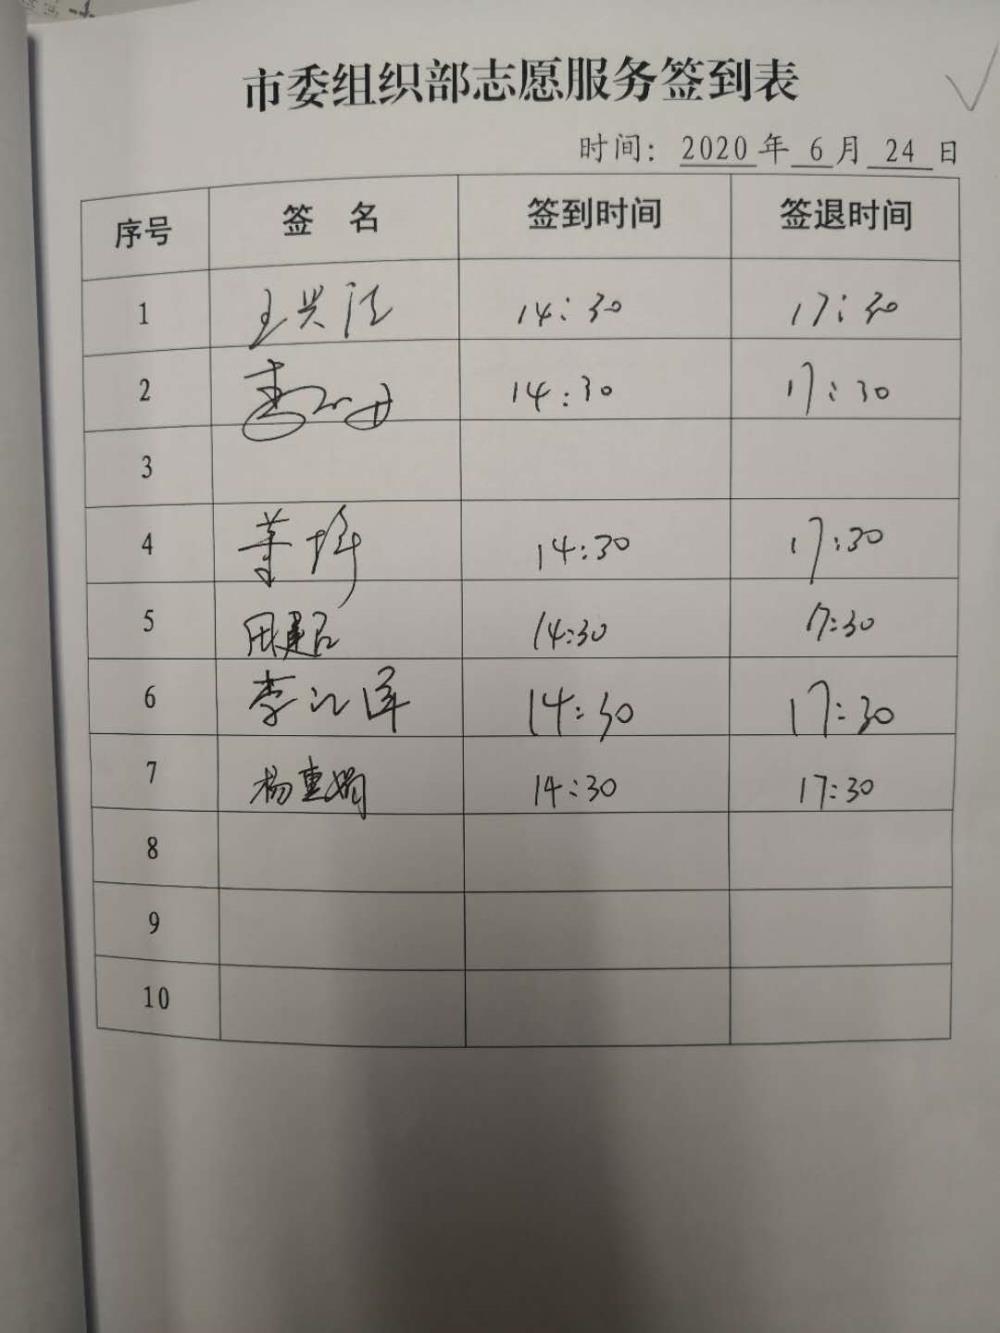 市委组织部志愿服务签到表
时间：2020年6月24日
序号 签 名 签到时间 签退时间
1 王兴江 14:30 17:30
2 14:30 17:30
3
4 董烨 14:30 17:30
5 田建召 14:30 17:30
6 李江泽 14:30 17:30
7 杨惠娟 14:30 17:30
8
9
10